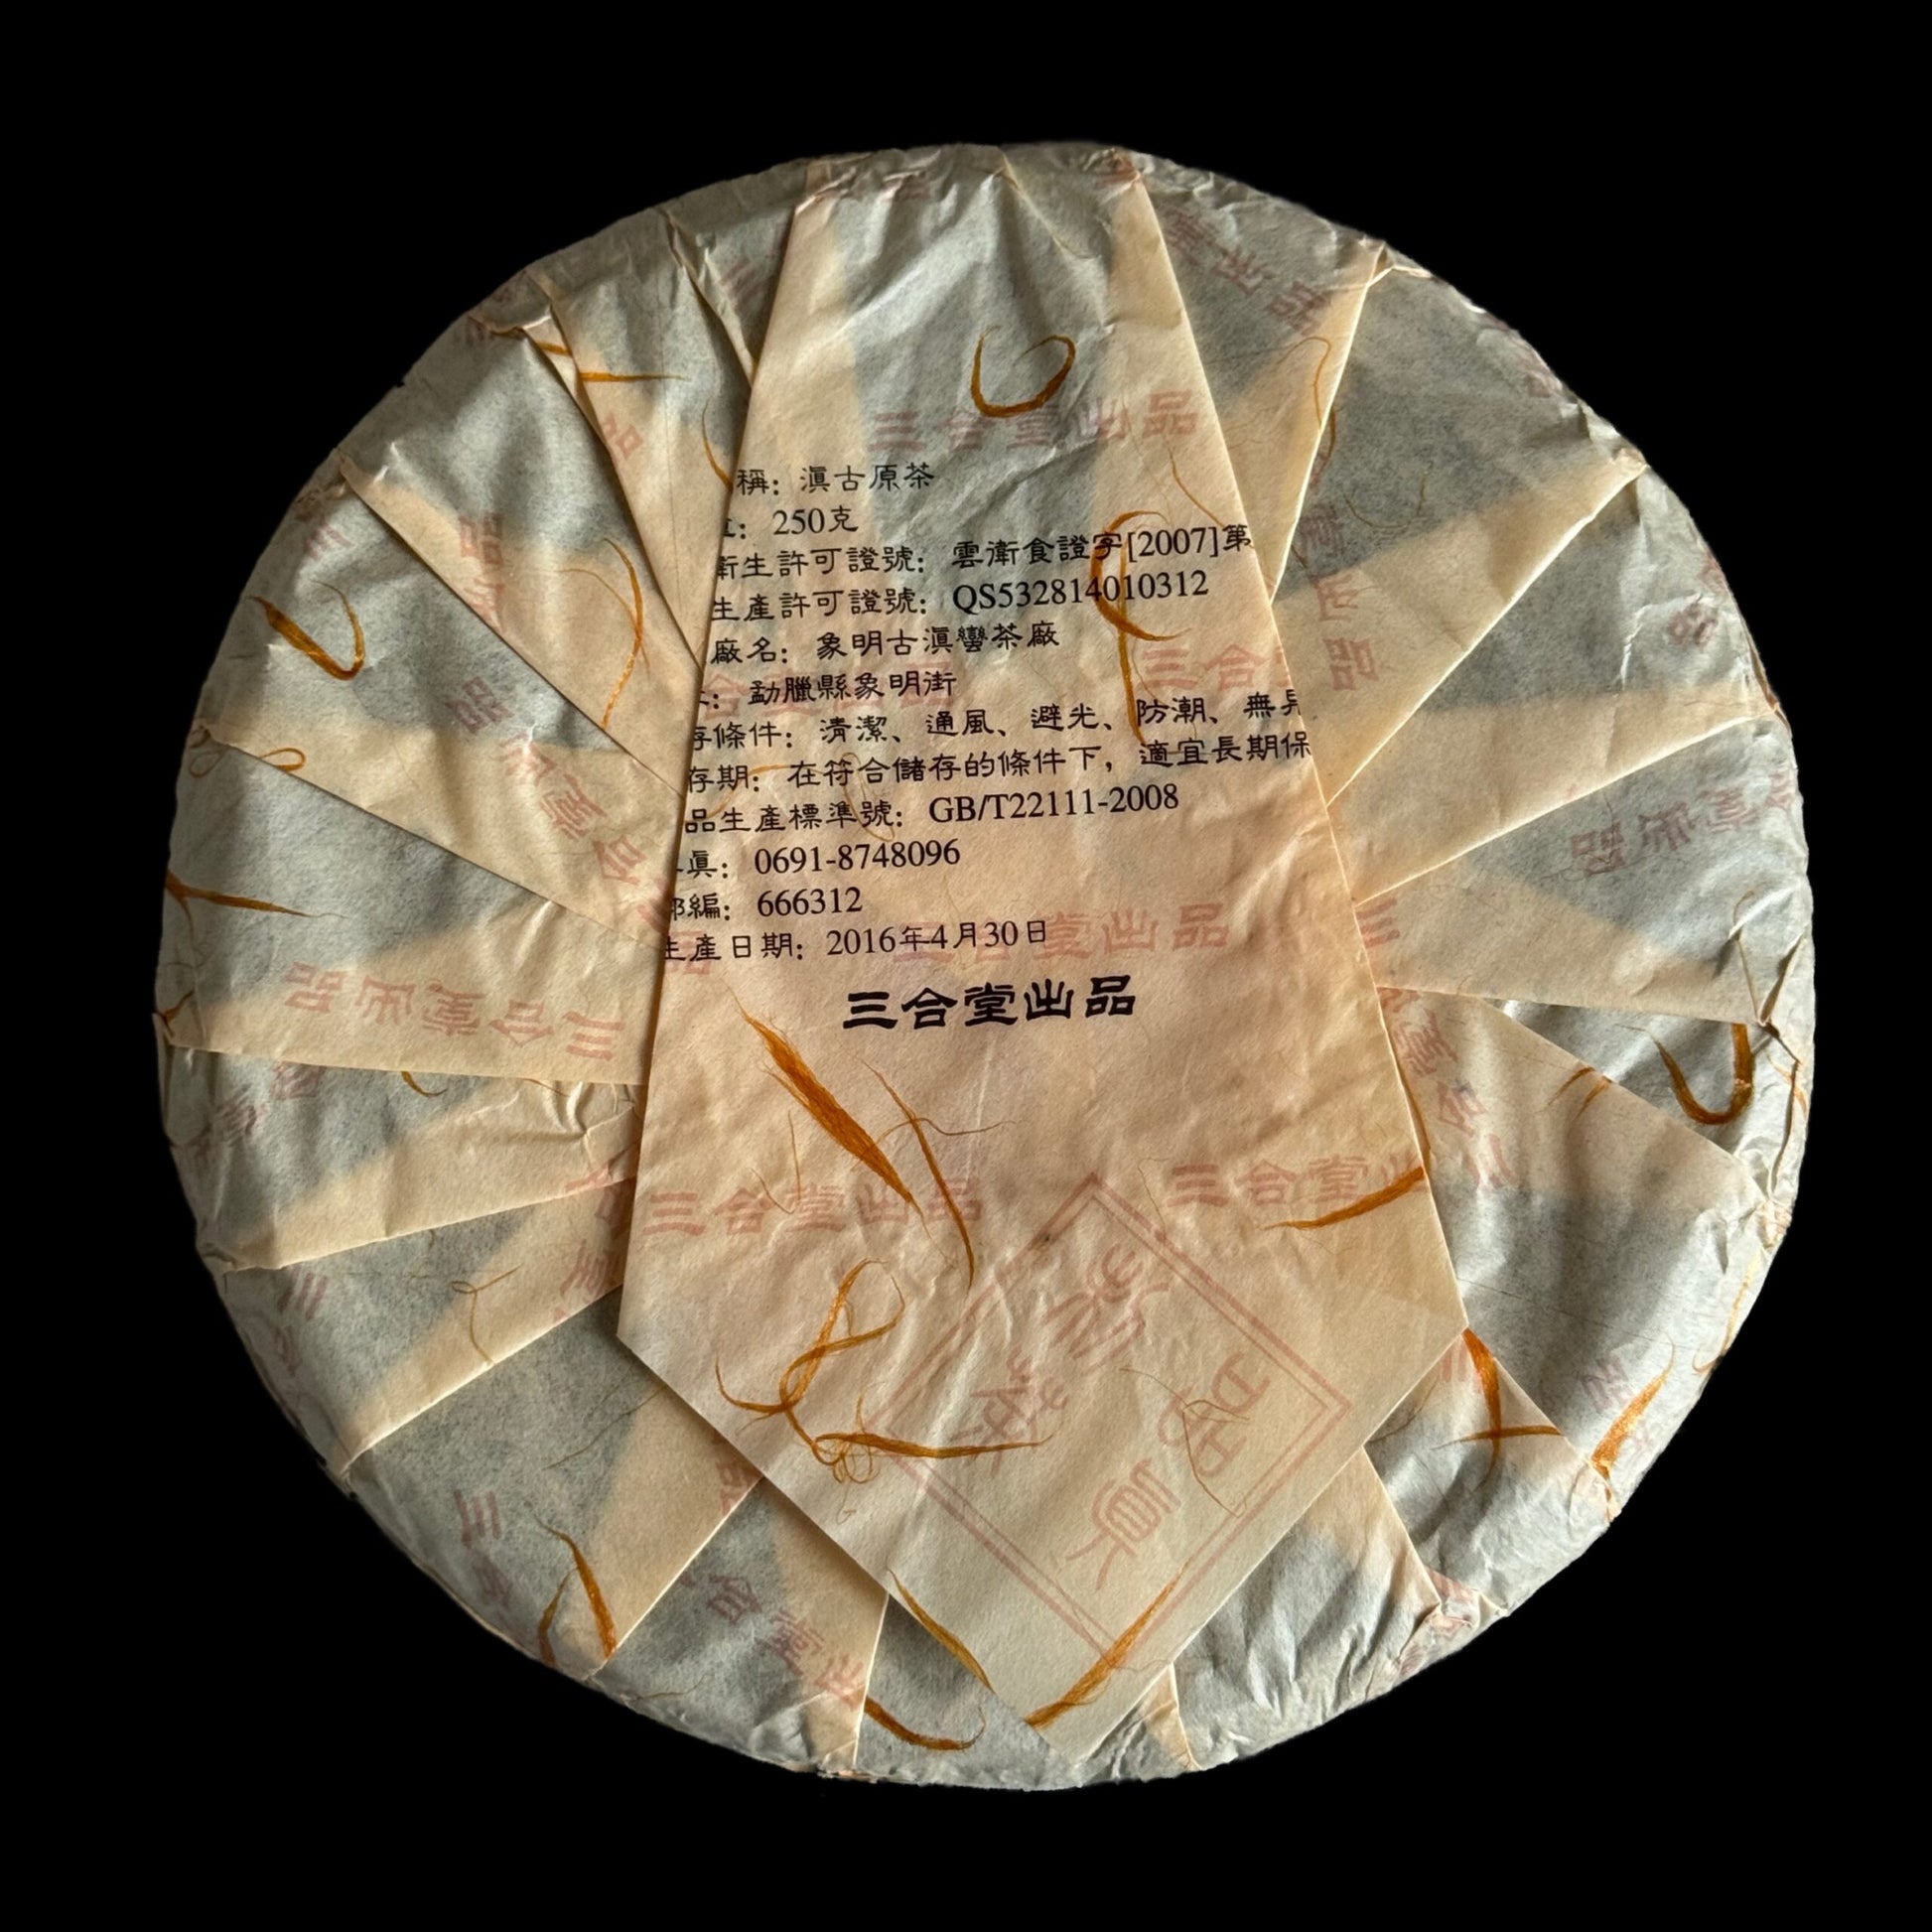 三合堂出品
稱：滇古原茶
：250克
衛生許可證號：雲衛食證字[2007]第
生產許可證號：QS532814010312
廠名：象明古滇蠻茶廠
：勐臘縣象明街
存條件：清潔、通風、避光、防潮、無
存期：在符合儲存的條件下，適宜長期保
品生產標準號：GB/T22111-2008
真：0691-8748096
郵編：666312
生產日期：2016年4月30日
三合堂出品
三合堂出品
三合堂